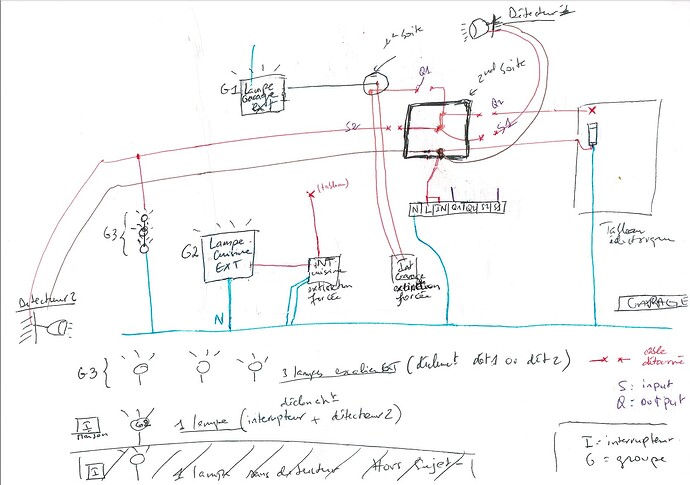 Détecteur 1
1er boite
Q1
G1
Lampe
Garage
Ext
2nd boite
Q2
S2
S1
(tableau)
G3
G2
Lampe
Cuisine
EXT
INT
cuisine
extinction
forcée
Int
Garage
extinction
forcée
N L IN Q1 Q2 S2 S1
Tableau
électrique
Détecteur 2
N
GARAGE
G3 3 lampes escalier EXT (déclencht dét 1 ou dét 2)
câble
détourné
S : input
Q : output
déclencht
I G2 1 lampe (interrupteur + détecteur 2)
maison
I 1 lampe sans détecteur Hors sujet
I : interrupteur
G = groupe